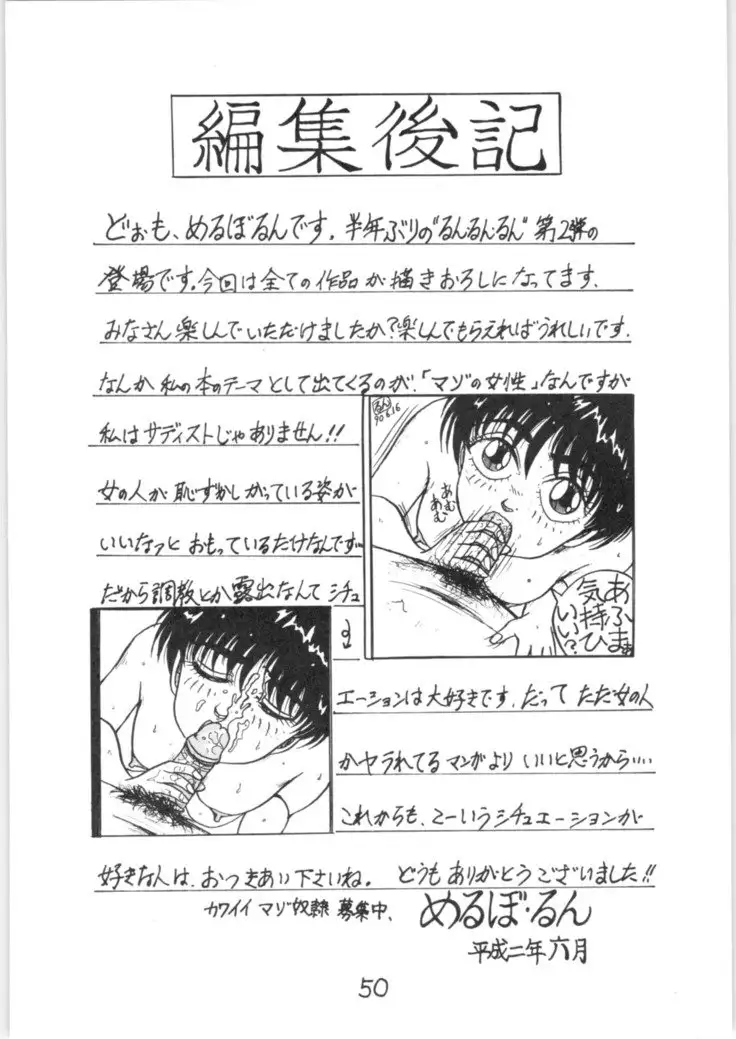 編集後記
どぉも、めるぼるんです。半年ぶりの"るんるん・るん"第2弾の
登場です。今回は全ての作品が描きおろしになってます、
みなさん楽しんでいただけましたか?楽しんでもらえればうれしいです。
なんか私の本のテーマとして出てくるのが、「マゾの女性」なんですが
私はサディストじゃありません!!
女の人が恥ずかしがっている姿が
いいなァっとおもっているだけなんです…
だから調教とか露出なんてシチュ
エーションは大好きです。だってただ女の人
がヤラれてるマンガよりいいと思うから‥‥
これからも、こーいうシチュエーションが
好きな人は、おつきあい下さいね。どうもありがとうございました!!
カワイイマゾ奴隷募集中、
めるぼ・るん
平成二年六月
るん
'90 6.16
あむ
あむ
あふまぁ
気持ひ
いい?
50